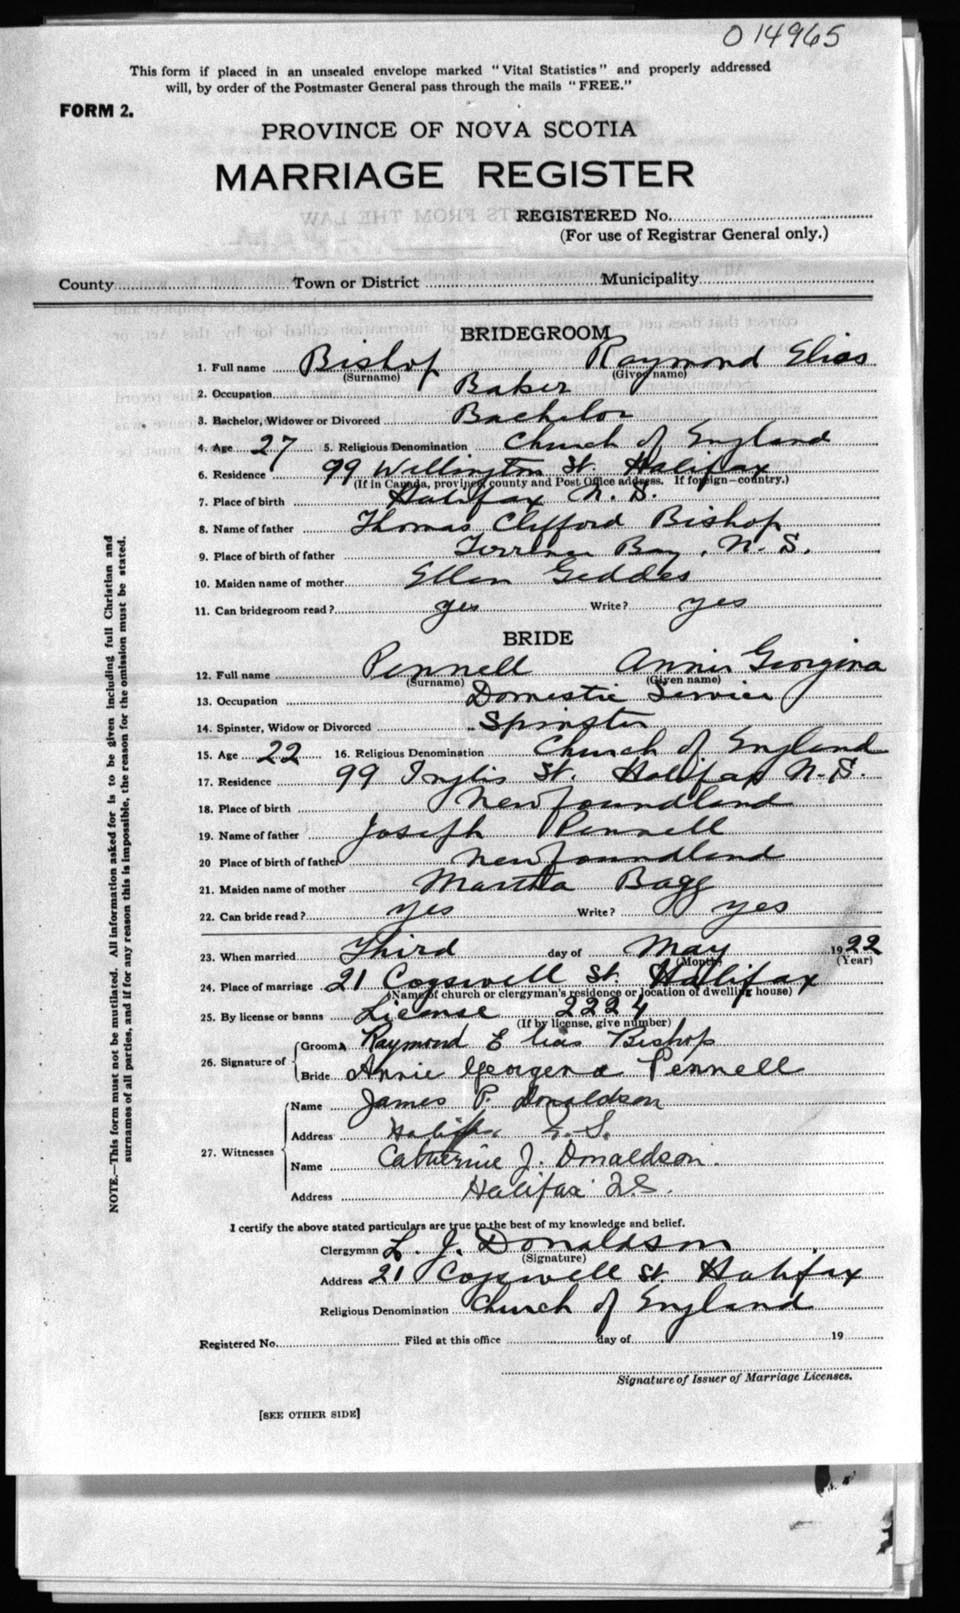 O 14965
This form if placed in an unsealed envelope marked "Vital Statistics" and properly addressed
will, by order of the Postmaster General pass through the mails "FREE."
FORM 2.
PROVINCE OF NOVA SCOTIA
MARRIAGE REGISTER
REGISTERED No.
(For use of Registrar General only.)
County Town or District Municipality
BRIDEGROOM
1. Full name Bishop Raymond Elias
(Surname) (Given name)
2. Occupation Baker
3. Bachelor, Widower or Divorced Bachelor
4. Age 27 5. Religious Denomination Church of England
6. Residence 99 Willington St. Halifax
(If in Canada, province county and Post Office address. If foreign—country.)
7. Place of birth Halifax N.S.
8. Name of father Thomas Clifford Bishop
9. Place of birth of father Bay, N.S.
10. Maiden name of mother Ellen Geddes
11. Can bridegroom read? yes Write? yes
BRIDE
12. Full name Pennell Annie Georgina
(Surname) (Given name)
13. Occupation Domestic Service
14. Spinster, Widow or Divorced Spinster
15. Age 22 16. Religious Denomination Church of England
17. Residence 99 Inglis St. Halifax N.S.
18. Place of birth Newfoundland
19. Name of father Joseph Pennell
20 Place of birth of father Newfoundland
21. Maiden name of mother Martha Bagg
22. Can bride read? yes Write? yes
23. When married Third day of May 1922
(Month) (Year)
24. Place of marriage 21 Cogswell St. Halifax
(Name of church or clergyman's residence or location of dwelling house)
25. By license or banns License 2224
(If by license, give number)
26. Signature of Groom Raymond Elias Bishop
Bride Annie Georgena Pennell
27. Witnesses Name James P. Donaldson
Address Halifax N.S.
Name Catherine J. Donaldson.
Address Halifax N.S.
I certify the above stated particulars are true to the best of my knowledge and belief.
Clergyman L. J. Donaldson
(Signature)
Address 21 Cogswell St. Halifax
Religious Denomination Church of England
Registered No. Filed at this office day of 19
Signature of Issuer of Marriage Licenses.
[SEE OTHER SIDE]
NOTE.—This form must not be mutilated. All information asked for is to be given including full Christian and
surnames of all parties, and if for any reason this is impossible, the reason for the omission must be stated.